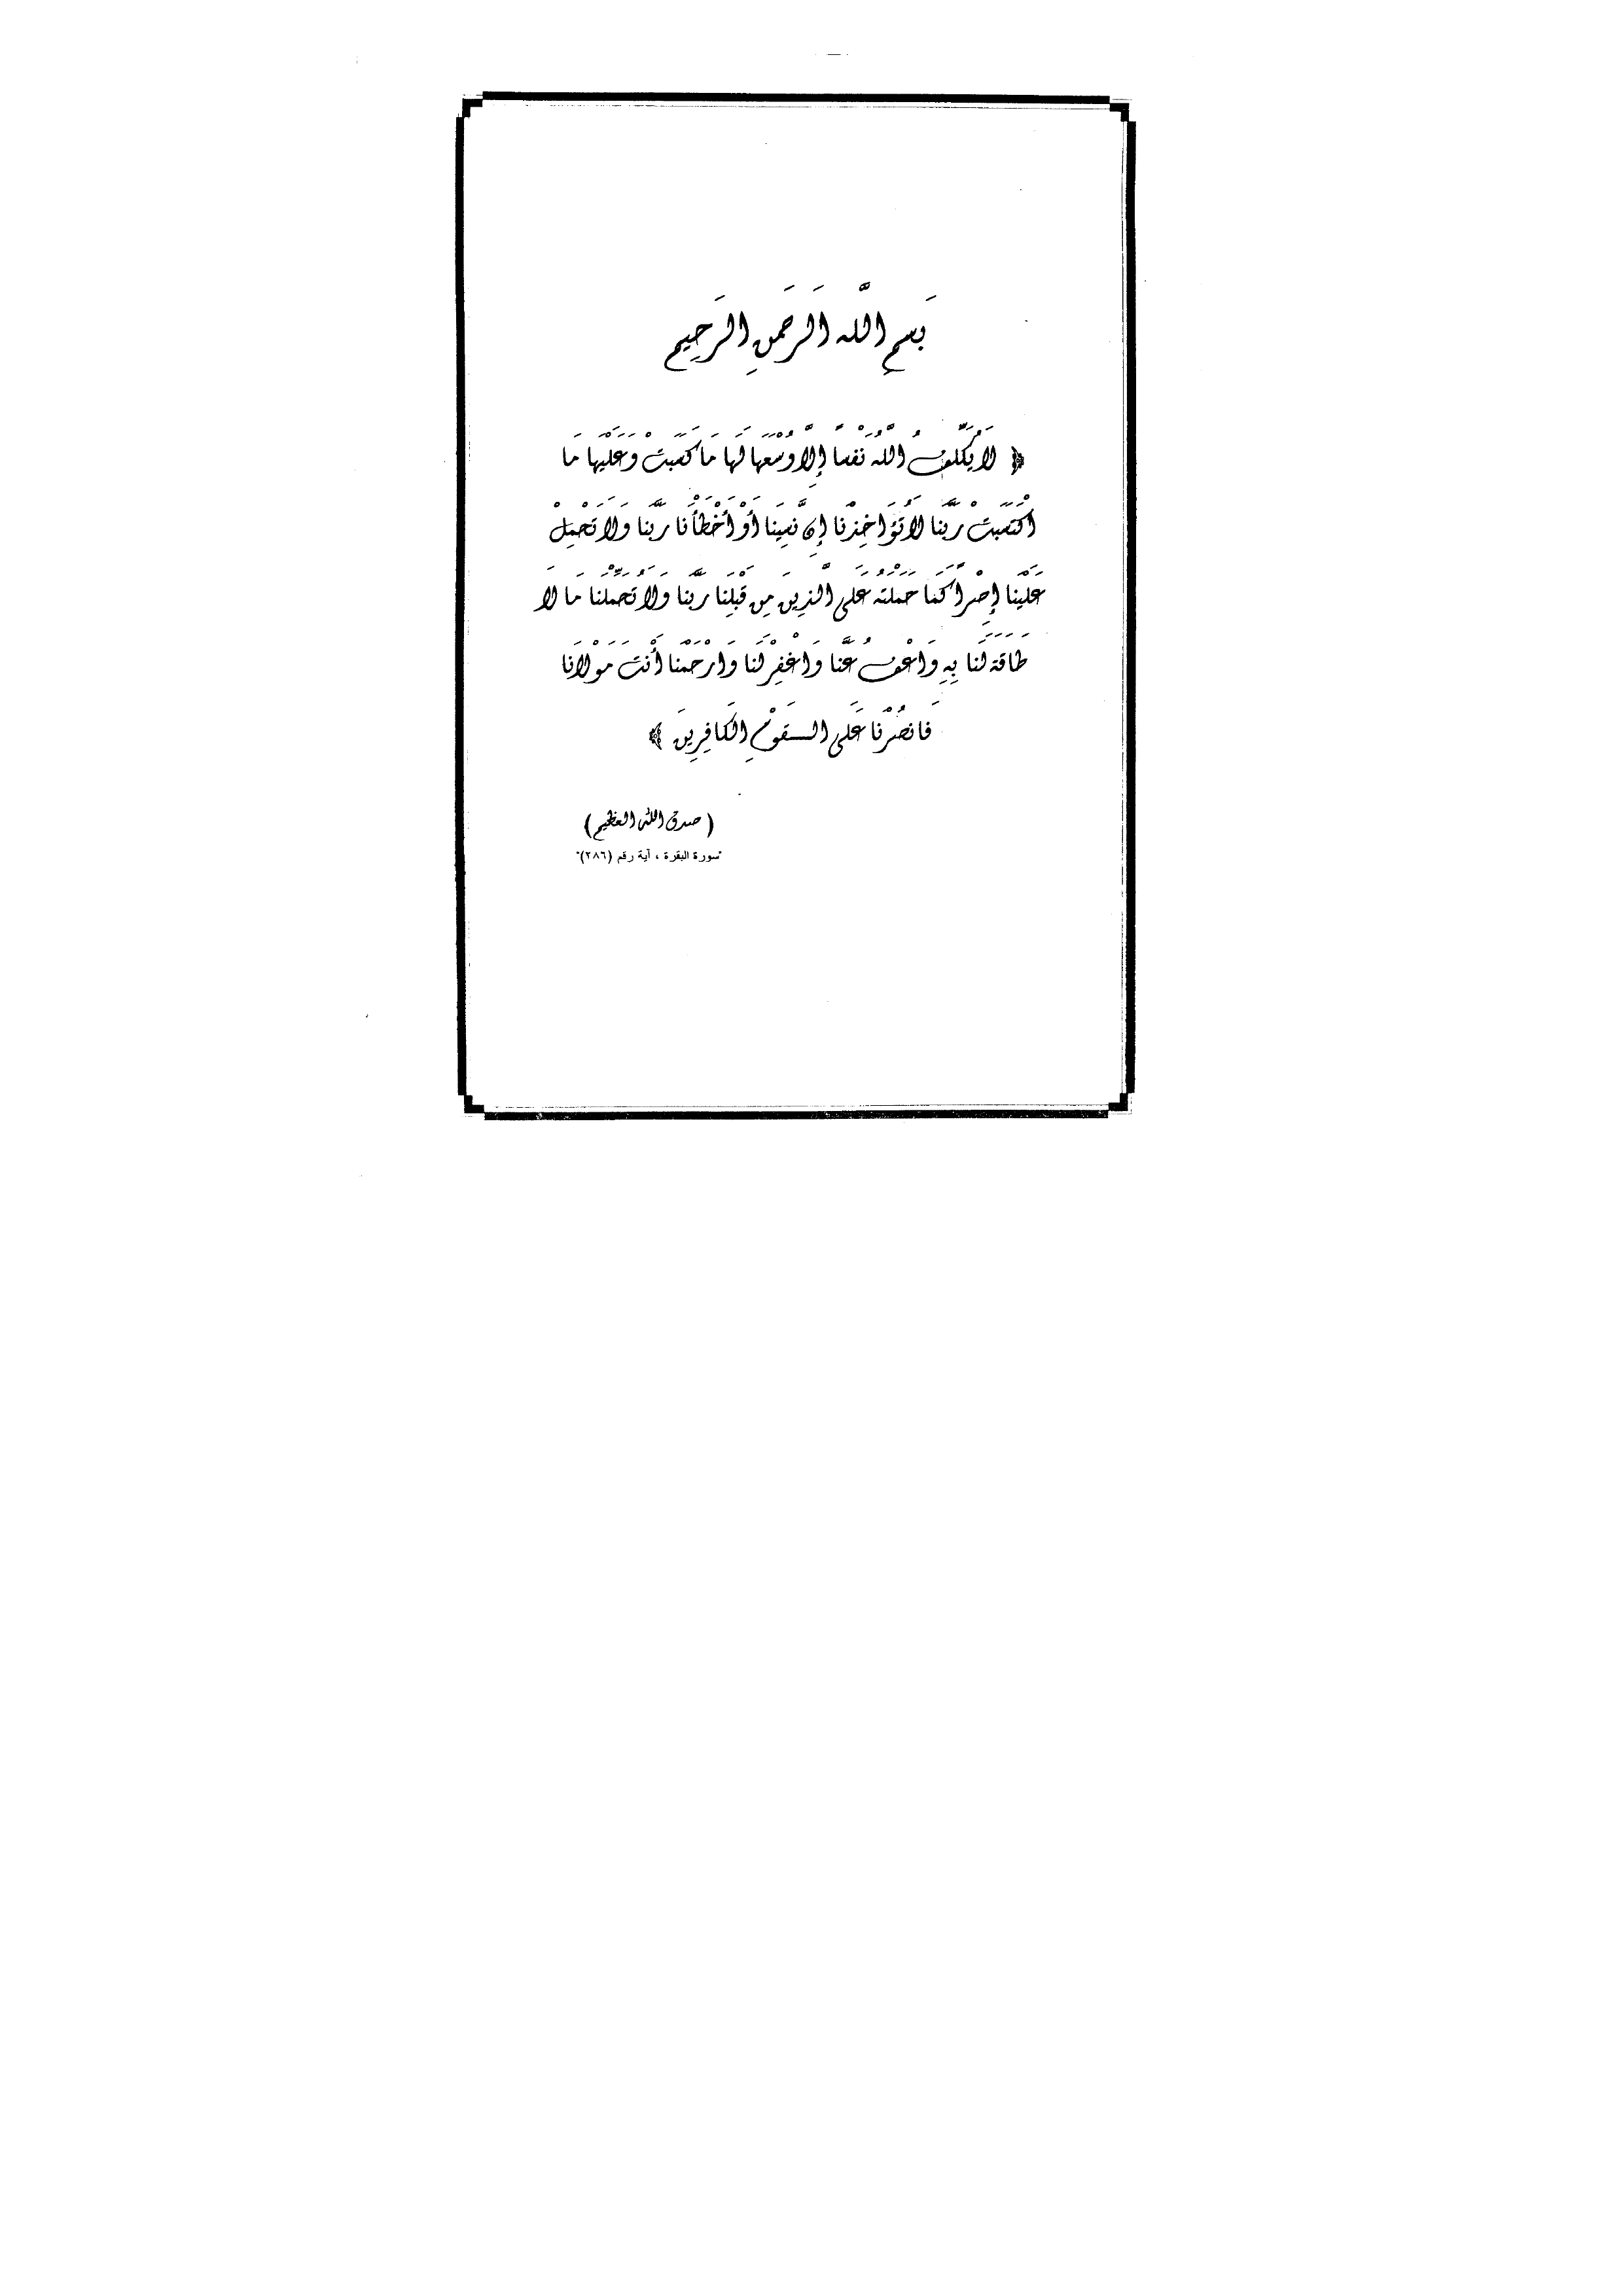 بسم الله الرحمن الرحيم
﴿ لا يكلف الله نفسا إلا وسعها لها ما كسبت وعليها ما
اكتسبت ربنا لا تؤاخذنا إن نسينا أو أخطأنا ربنا ولا تحمل
علينا إصرا كما حملته على الذين من قبلنا ربنا ولا تحملنا ما لا
طاقة لنا به واعف عنا واغفر لنا وارحمنا أنت مولانا
فانصرنا على القوم الكافرين ﴾
(صدق الله العظيم)
"سورة البقرة ، آية رقم (٢٨٦)"